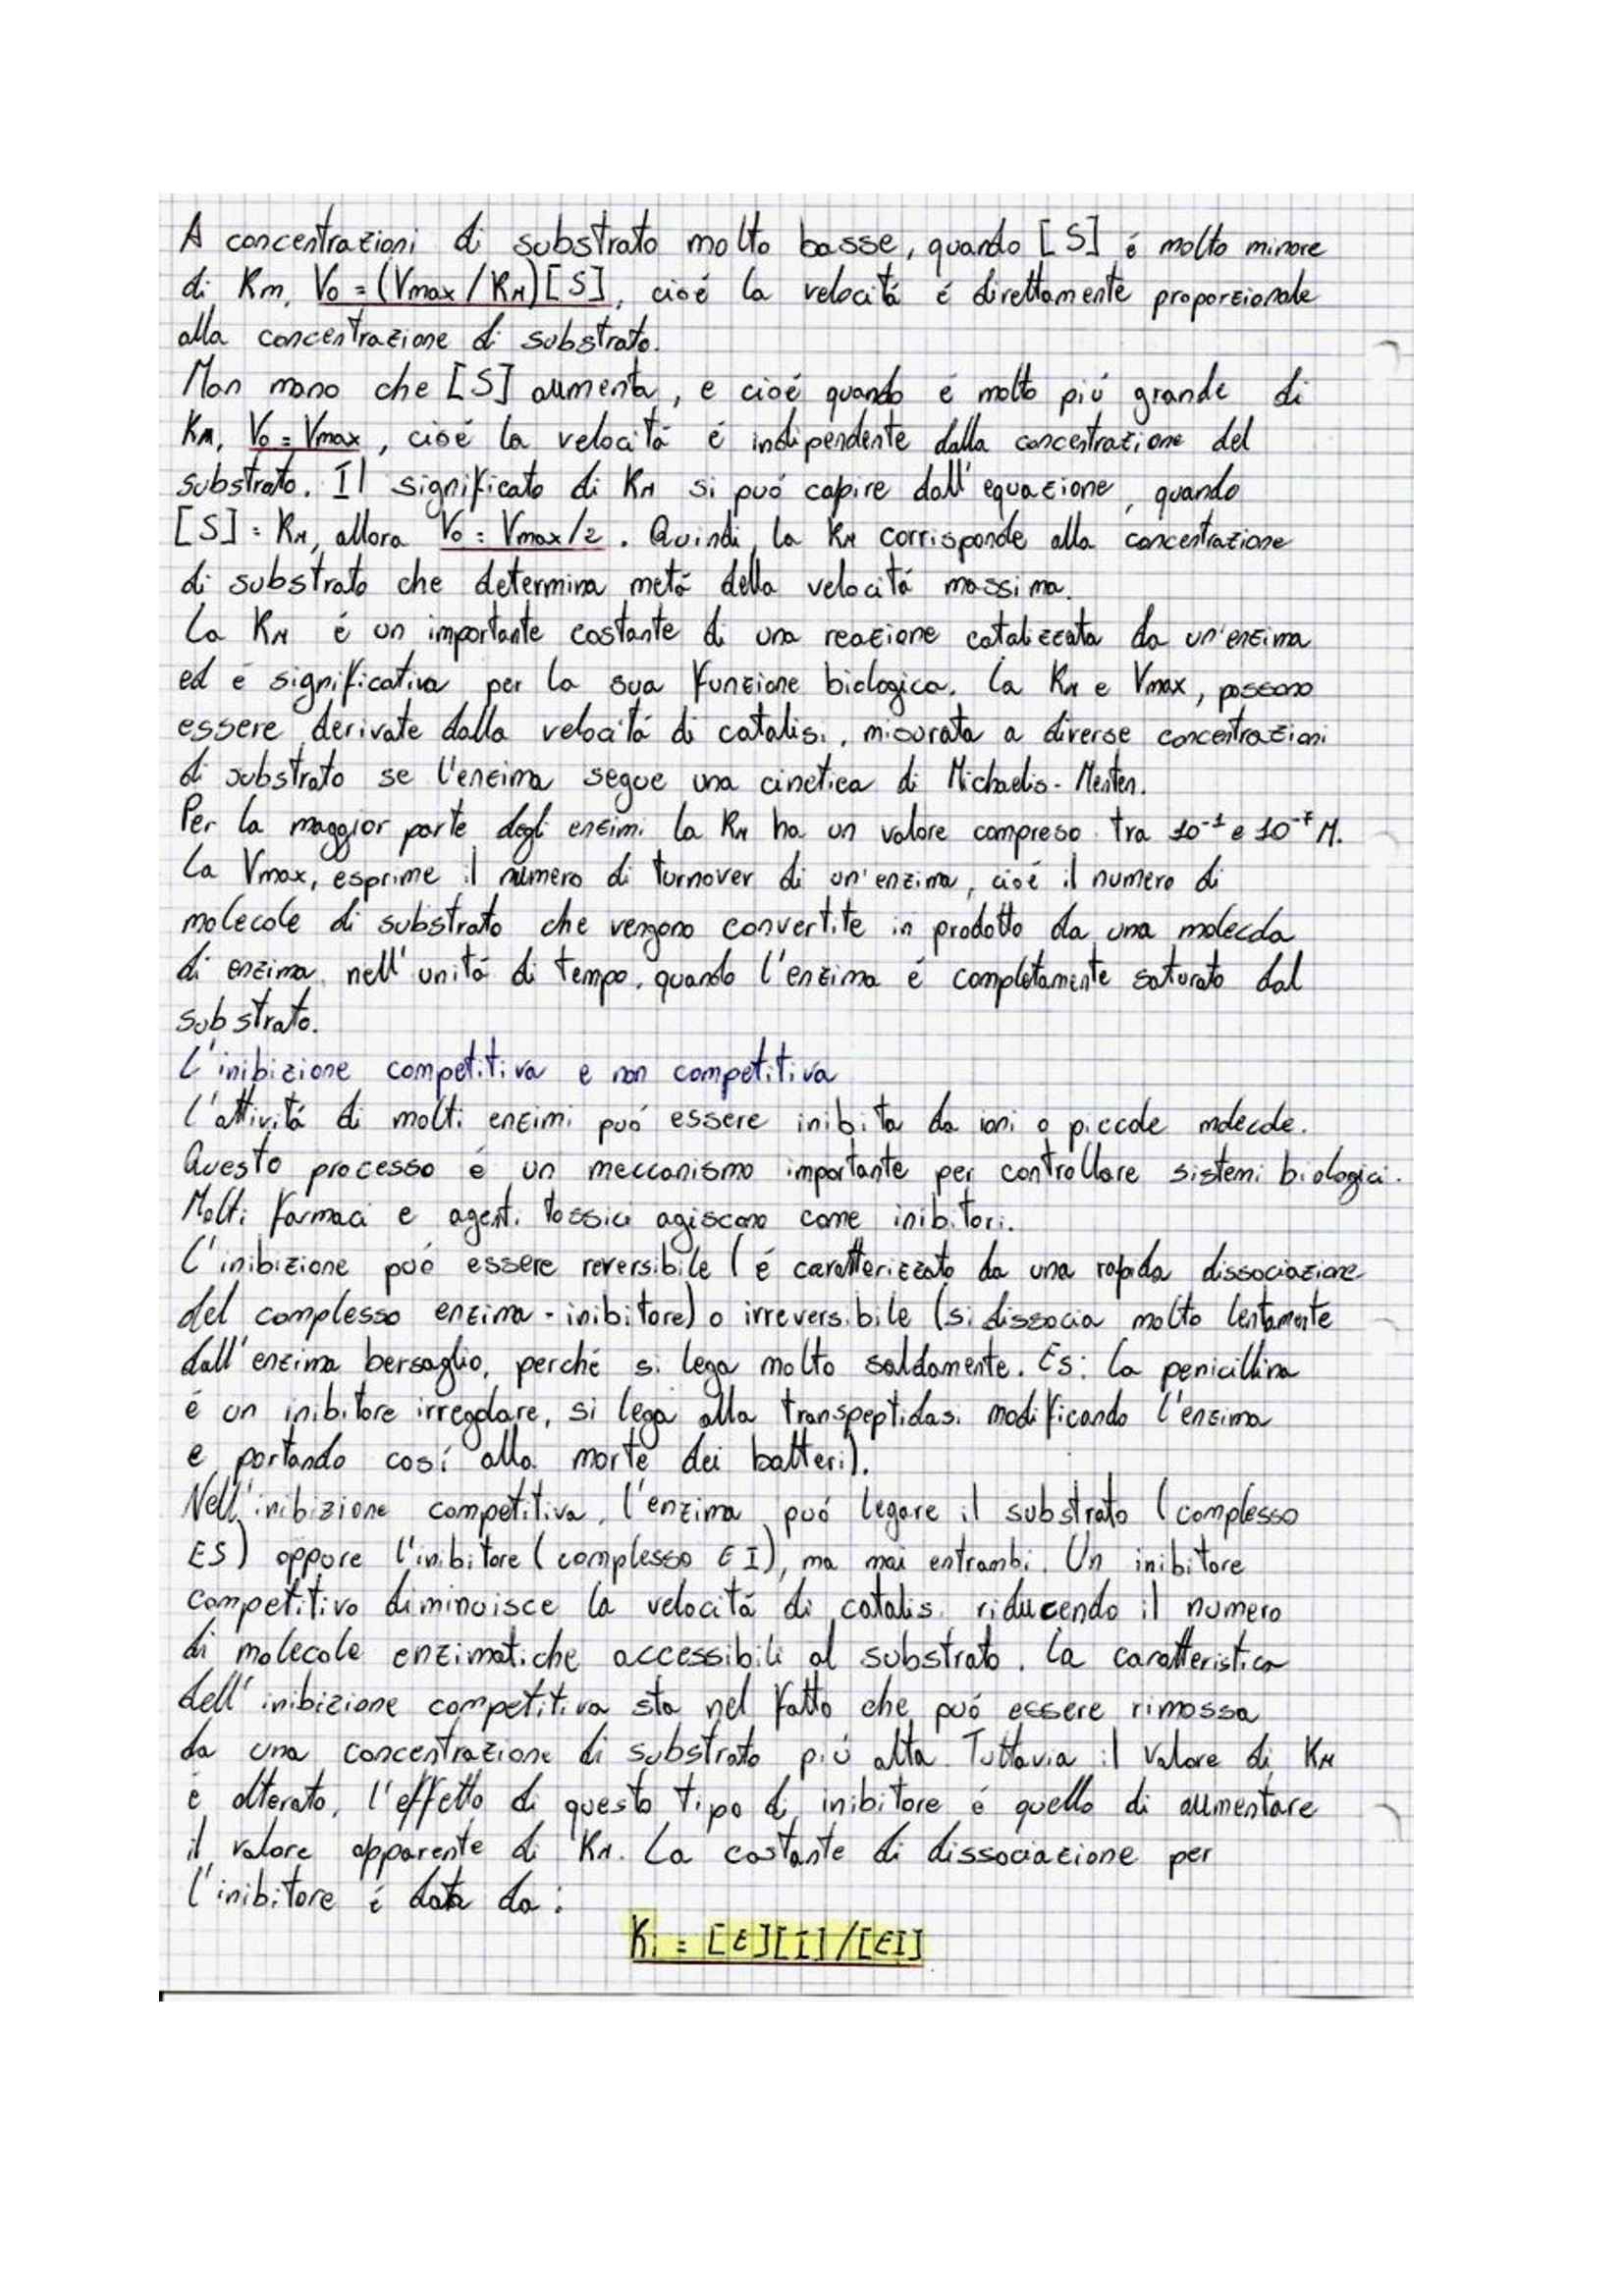 A concentrazioni di substrato molto basse, quando [S] é molto minore
di Km, V0 = (Vmax / KM) [S], cioé la velocitá é direttamente proporzionale
alla concentrazione di substrato.
Man mano che [S] aumenta, e cioé quando é molto piú grande di
KM, V0 = Vmax, cioé la velocitá é indipendente dalla concentrazione del
substrato. Il significato di KM si puó capire dall'equazione, quando
[S] = KM, allora V0 = Vmax/2. Quindi, la KM corrisponde alla concentrazione
di substrato che determina metá della velocitá massima.
La KM é un importante costante di una reazione catalizzata da un'enzima
ed é significativa per la sua funzione biologica. La KM e Vmax, possono
essere derivate dalla velocitá di catalisi, misurata a diverse concentrazioni
di substrato se l'enzima segue una cinetica di Michaelis-Menten.
Per la maggior parte degli enzimi la KM ha un valore compreso tra 10⁻¹ e 10⁻⁷ M.
La Vmax, esprime il numero di turnover di un'enzima, cioé il numero di
molecole di substrato che vengono convertite in prodotto da una molecola
di enzima, nell'unitá di tempo, quando l'enzima é completamente saturato dal
substrato.
L'inibizione competitiva e non competitiva
L'attivitá di molti enzimi puó essere inibita da ioni o piccole molecole.
Questo processo é un meccanismo importante per controllare sistemi biologici.
Molti farmaci e agenti tossici agiscono come inibitori.
L'inibizione puó essere reversibile (é caratterizzato da una rapida dissociazione
del complesso enzima-inibitore) o irreversibile (si dissocia molto lentamente
dall'enzima bersaglio, perché si lega molto saldamente. Es: La penicillina
é un inibitore irregolare, si lega alla transpeptidasi modificando l'enzima
e portando cosí alla morte dei batteri).
Nell'inibizione competitiva, l'enzima puó legare il substrato (complesso
ES) oppure l'inibitore (complesso EI), ma mai entrambi. Un inibitore
competitivo diminuisce la velocitá di catalisi riducendo il numero
di molecole enzimatiche accessibili al substrato. La caratteristica
dell'inibizione competitiva sta nel fatto che puó essere rimossa
da una concentrazione di substrato piú alta. Tuttavia il valore di KM
é alterato, l'effetto di questo tipo di inibitore é quello di aumentare
il valore apparente di KM. La costante di dissociazione per
l'inibitore é data da:
Ki = [E][I]/[EI]